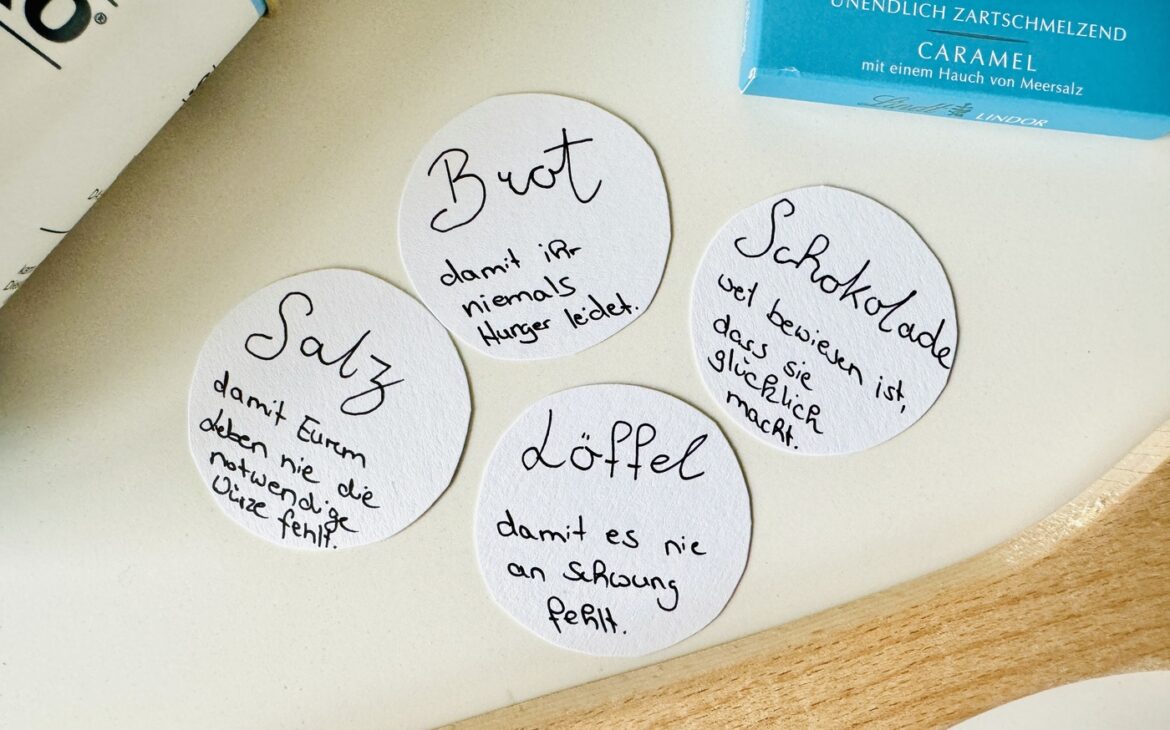 UNENDLICH ZARTSCHMELZEND
CARAMEL
mit einem Hauch von Meersalz
Lindt LINDOR
Brot
damit ihr
niemals
Hunger leidet.
Schokolade
weil bewiesen ist,
dass sie
glücklich
macht.
Salz
damit Eurem
Leben nie die
notwendige
Würze fehlt.
Löffel
damit es nie
an Schwung
fehlt.